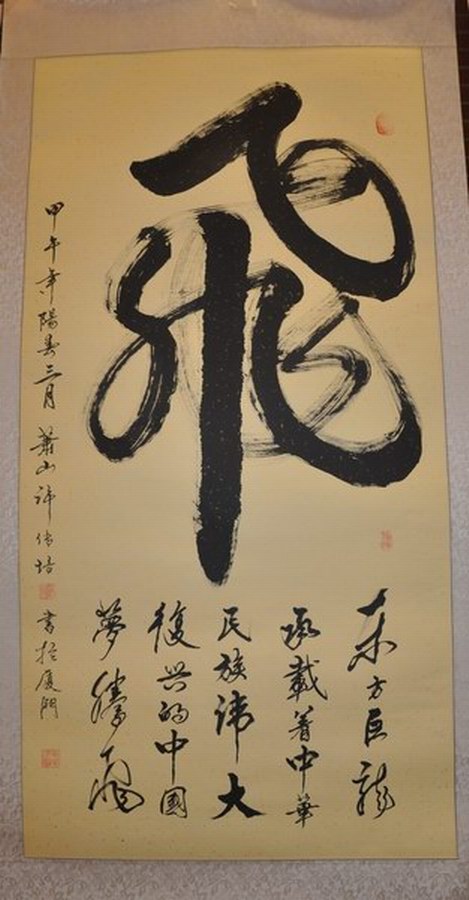 飛
东方巨龍
承載着中華
民族偉大
復兴的中國
夢騰飛
甲午年陽春三月 蕭山許传培 書於厦門